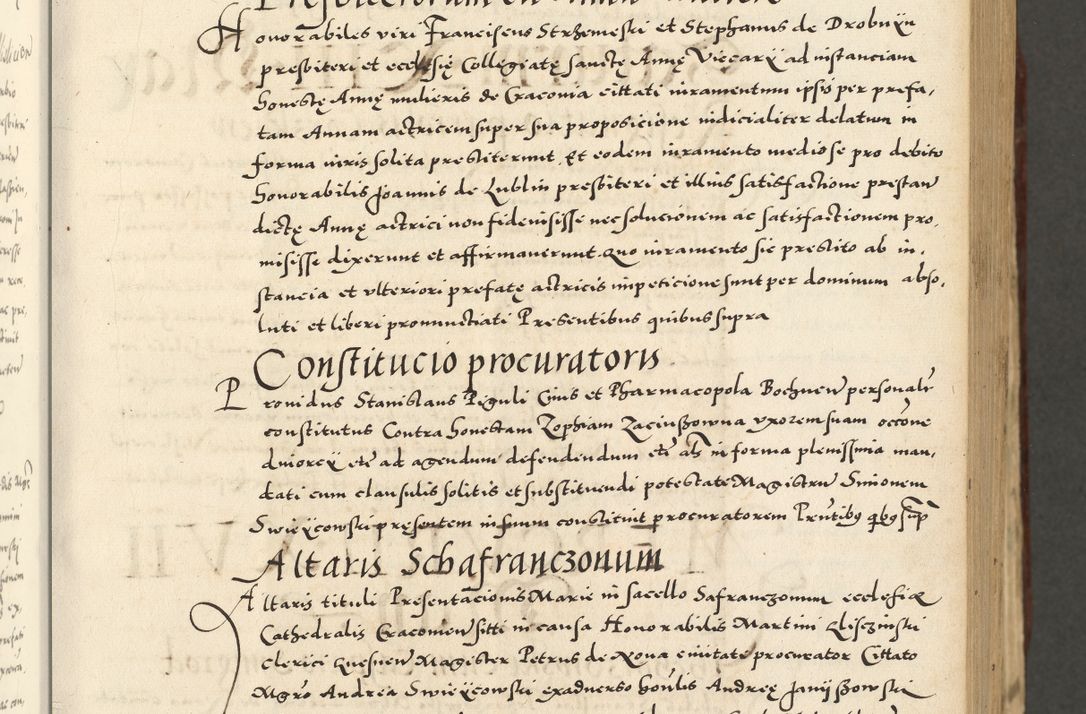 Honorabiles viri Francisens Strzemeski et Stephanus de Drobnÿn
presbiteri et ecclesię Collegiatę sanctę Annę Viccarÿ ad instanciam
honestę Annę mulieris de Cracovia cittati iuramentum ipsis per prefa,
tam Annam actricem super sua proposicione iudicialiter delatum in
forma iuris solita prestiterunt. Et eodem iuramento medio se pro debito
honorabilis Joannis de Lublin presbiteri et illius satisfactione prestan
dictę Annę actrici non fideiusisse nec solucionem ac satisfactionem pro,
misisse dixerunt et affirmaverunt. Quo iuramento sic prestito ab in,
stancia et ulteriori prefatę actricis impeticione sunt per dominum abso,
luti et liberi pronunctiati Presentibus quibus supra
Constitucio procuratoris
Providus Stanislaus Piguli Civis et Pharmacopola Bochnen personalr
constitutus Contra honestam Zophiam Zaciuszowna uxorem suam occone
divorcÿ etc ad agendum defendendum etc als in forma plenissima man,
dati cum clausulis solitis et substituendi potestate Magistru Simonem
Swieÿcowski presentem in suum constituit procuratorem Prntibus qbus sup
Altaris Schafranczonum
Altaris tituli Presentacionis Marie in sacello Safranczonum ecclesiæ
Cathedralis Cracovien sitti in causa Honorabilis Martini
Clerici Magister Petrus de Nova civitate procurator Cittato
Mgro Andrea Swieÿcowski exadverso honlis Andreę Janÿszowski